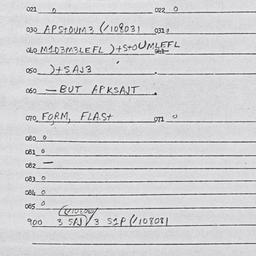 021 0 022 0
030 APStOUM3 (/108031 031 0
040 M1D3M3LEFL )+StOUMLEFL
050 )+SAJ3
060 — BUT APKSAJT .
070 FORM, FLASt 071 0
080 0
081 0
082 —
083 0
084 0
085 0
900 3 SAJ/3 S1P (/108081